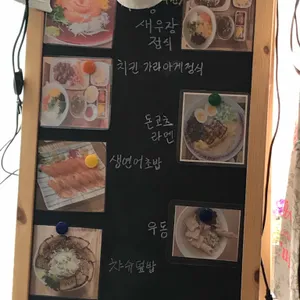 새우장
정식
치킨 가라아게정식
돈코츠
라멘
생연어초밥
우동
차슈덮밥